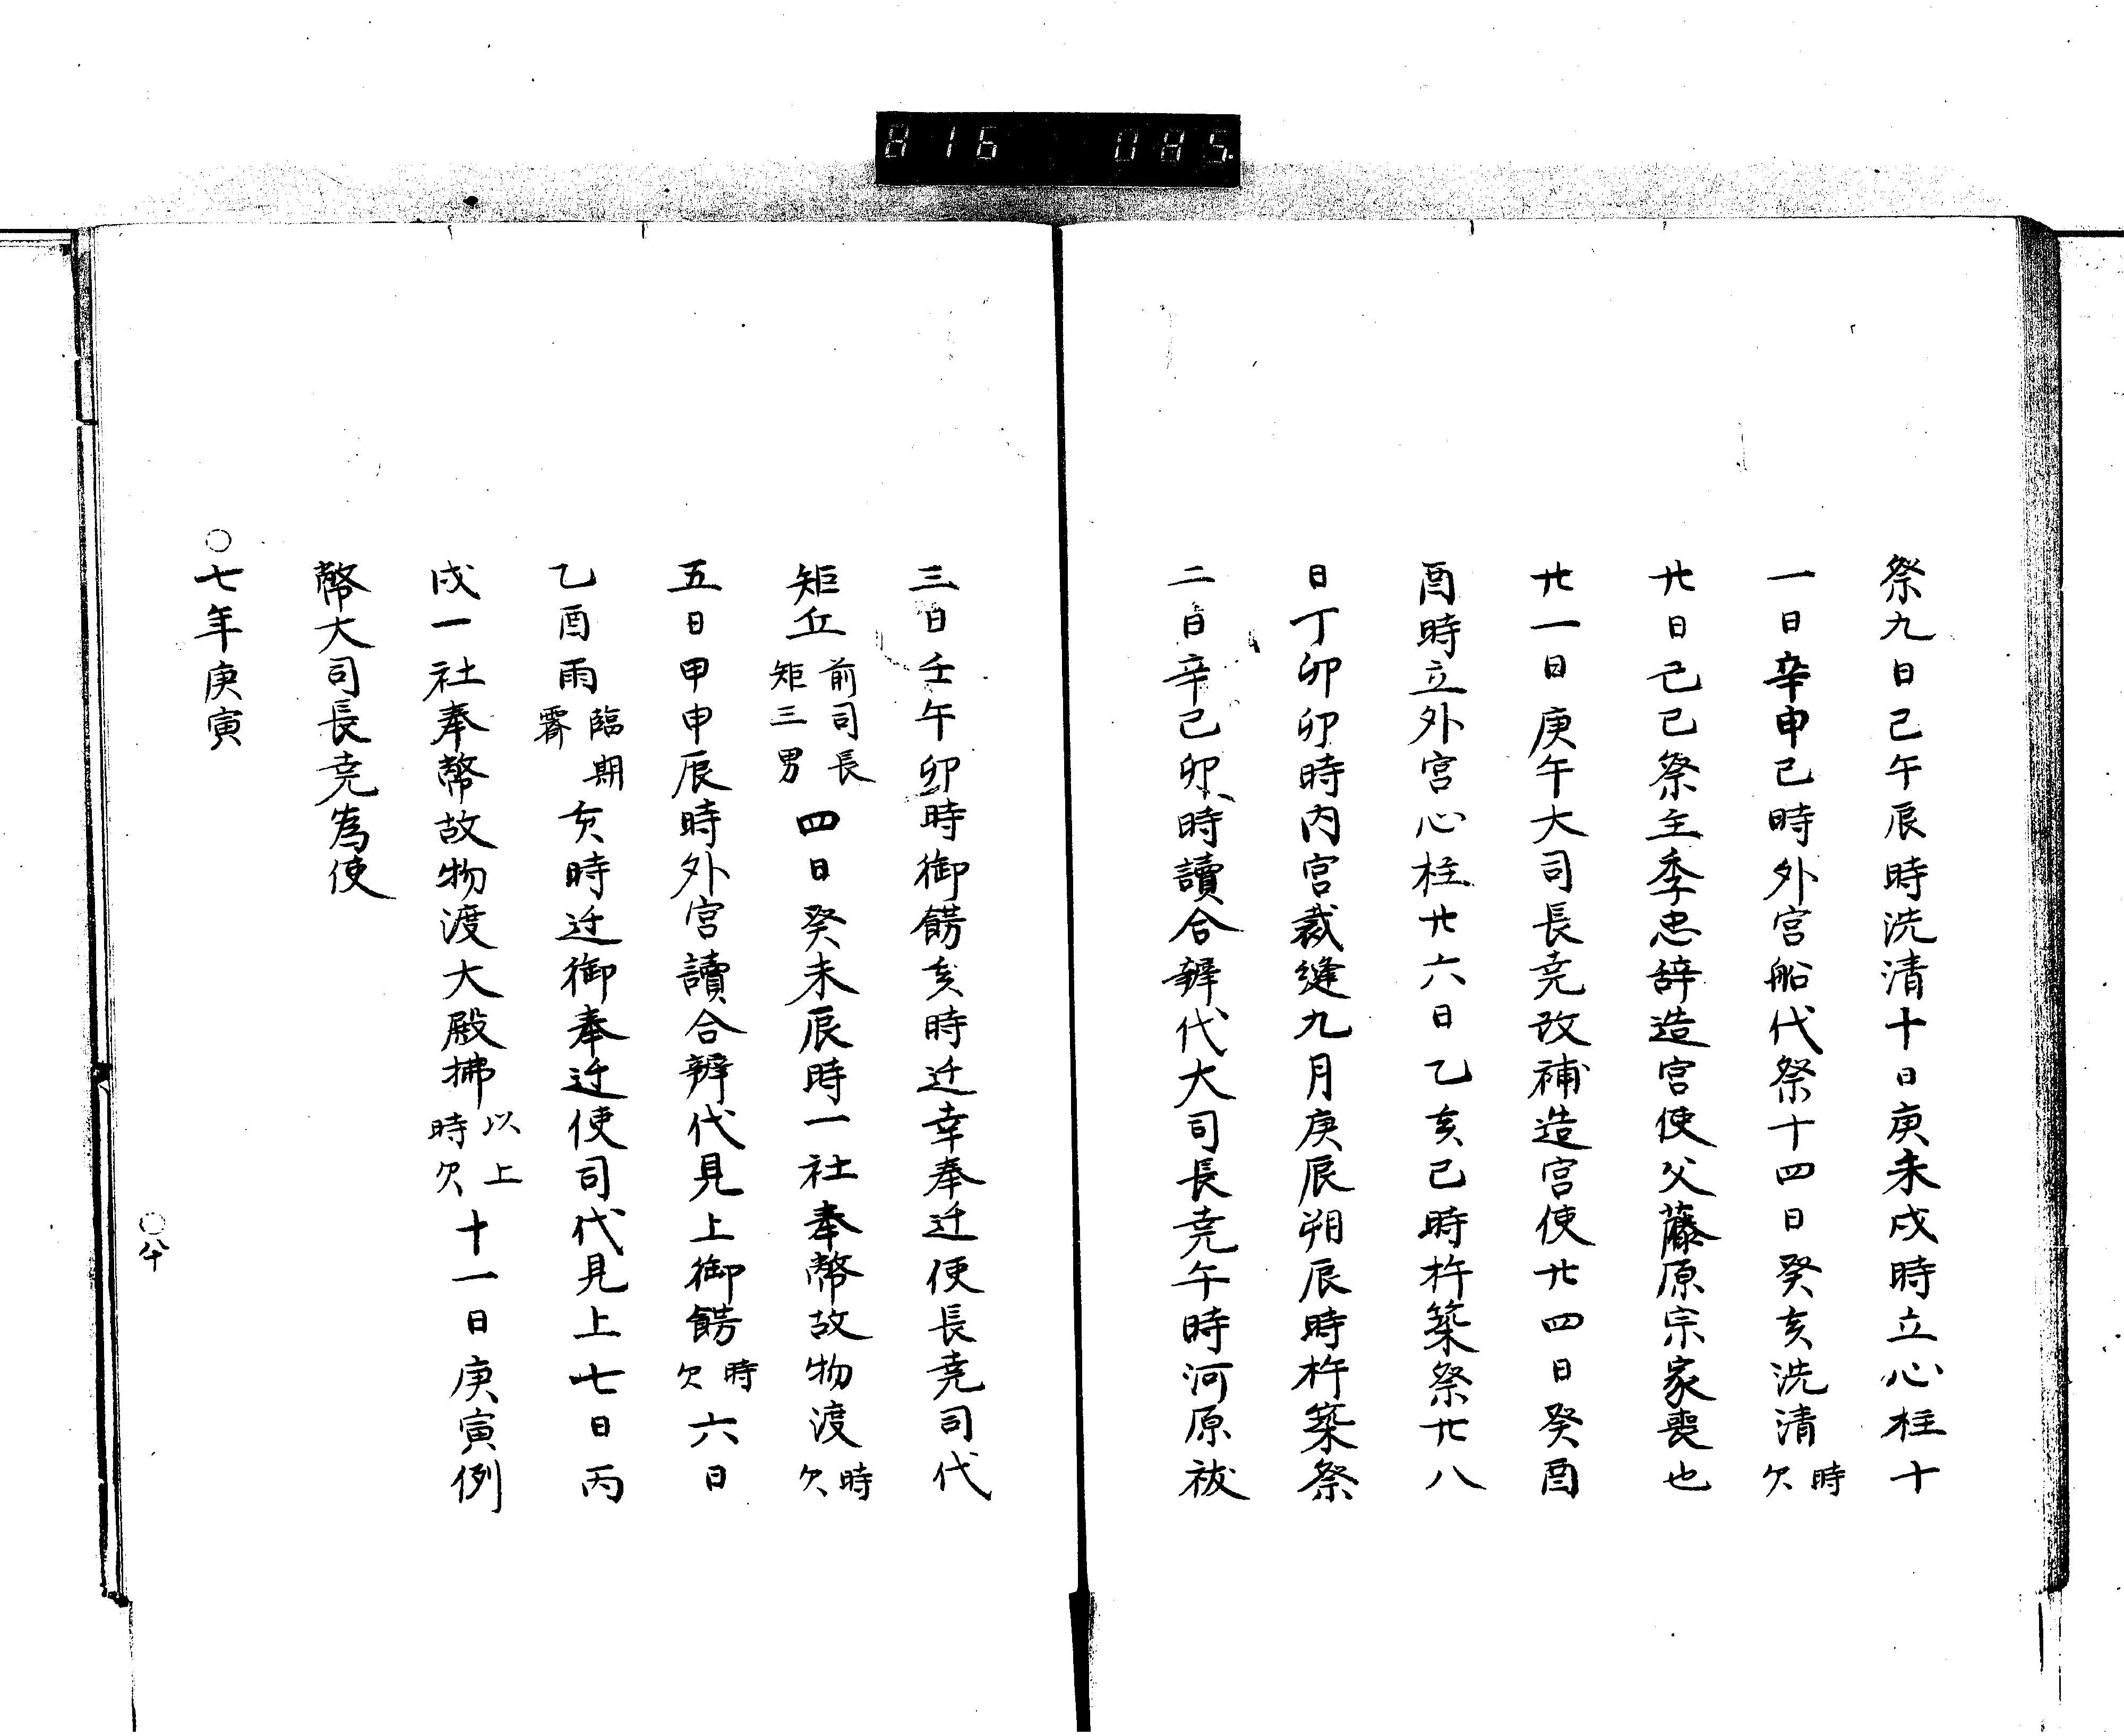 816 085
祭九日己午辰時洗清十日庚未戌時立心柱十
一日辛申己時外宮船代祭十四日癸亥洗清時欠
廿日己巳祭主季忠辞造宮使父藤原宗家喪也
廿一日庚午大司長尭改補造宮使廿四日癸酉
酉時立外宮心柱廿六日乙亥己時杵築祭廿八
日丁卯卯時内宮裁縫九月庚辰朔辰時杵築祭
二日辛己卯時讀合辨代大司長尭午時河原祓
三日壬午卯時御餝亥時迁幸奉迁使長尭司代
矩丘前司長矩三男四日癸未辰時一社奉幣故物渡時欠
五日甲申辰時外宮讀合辨代見上御餝時欠六日
乙酉雨臨期霽亥時迁御奉迁使司代見上七日丙
戌一社奉幣故物渡大殿拂以上時欠十一日庚寅例
幣大司長尭為使
○七年庚寅
○八十